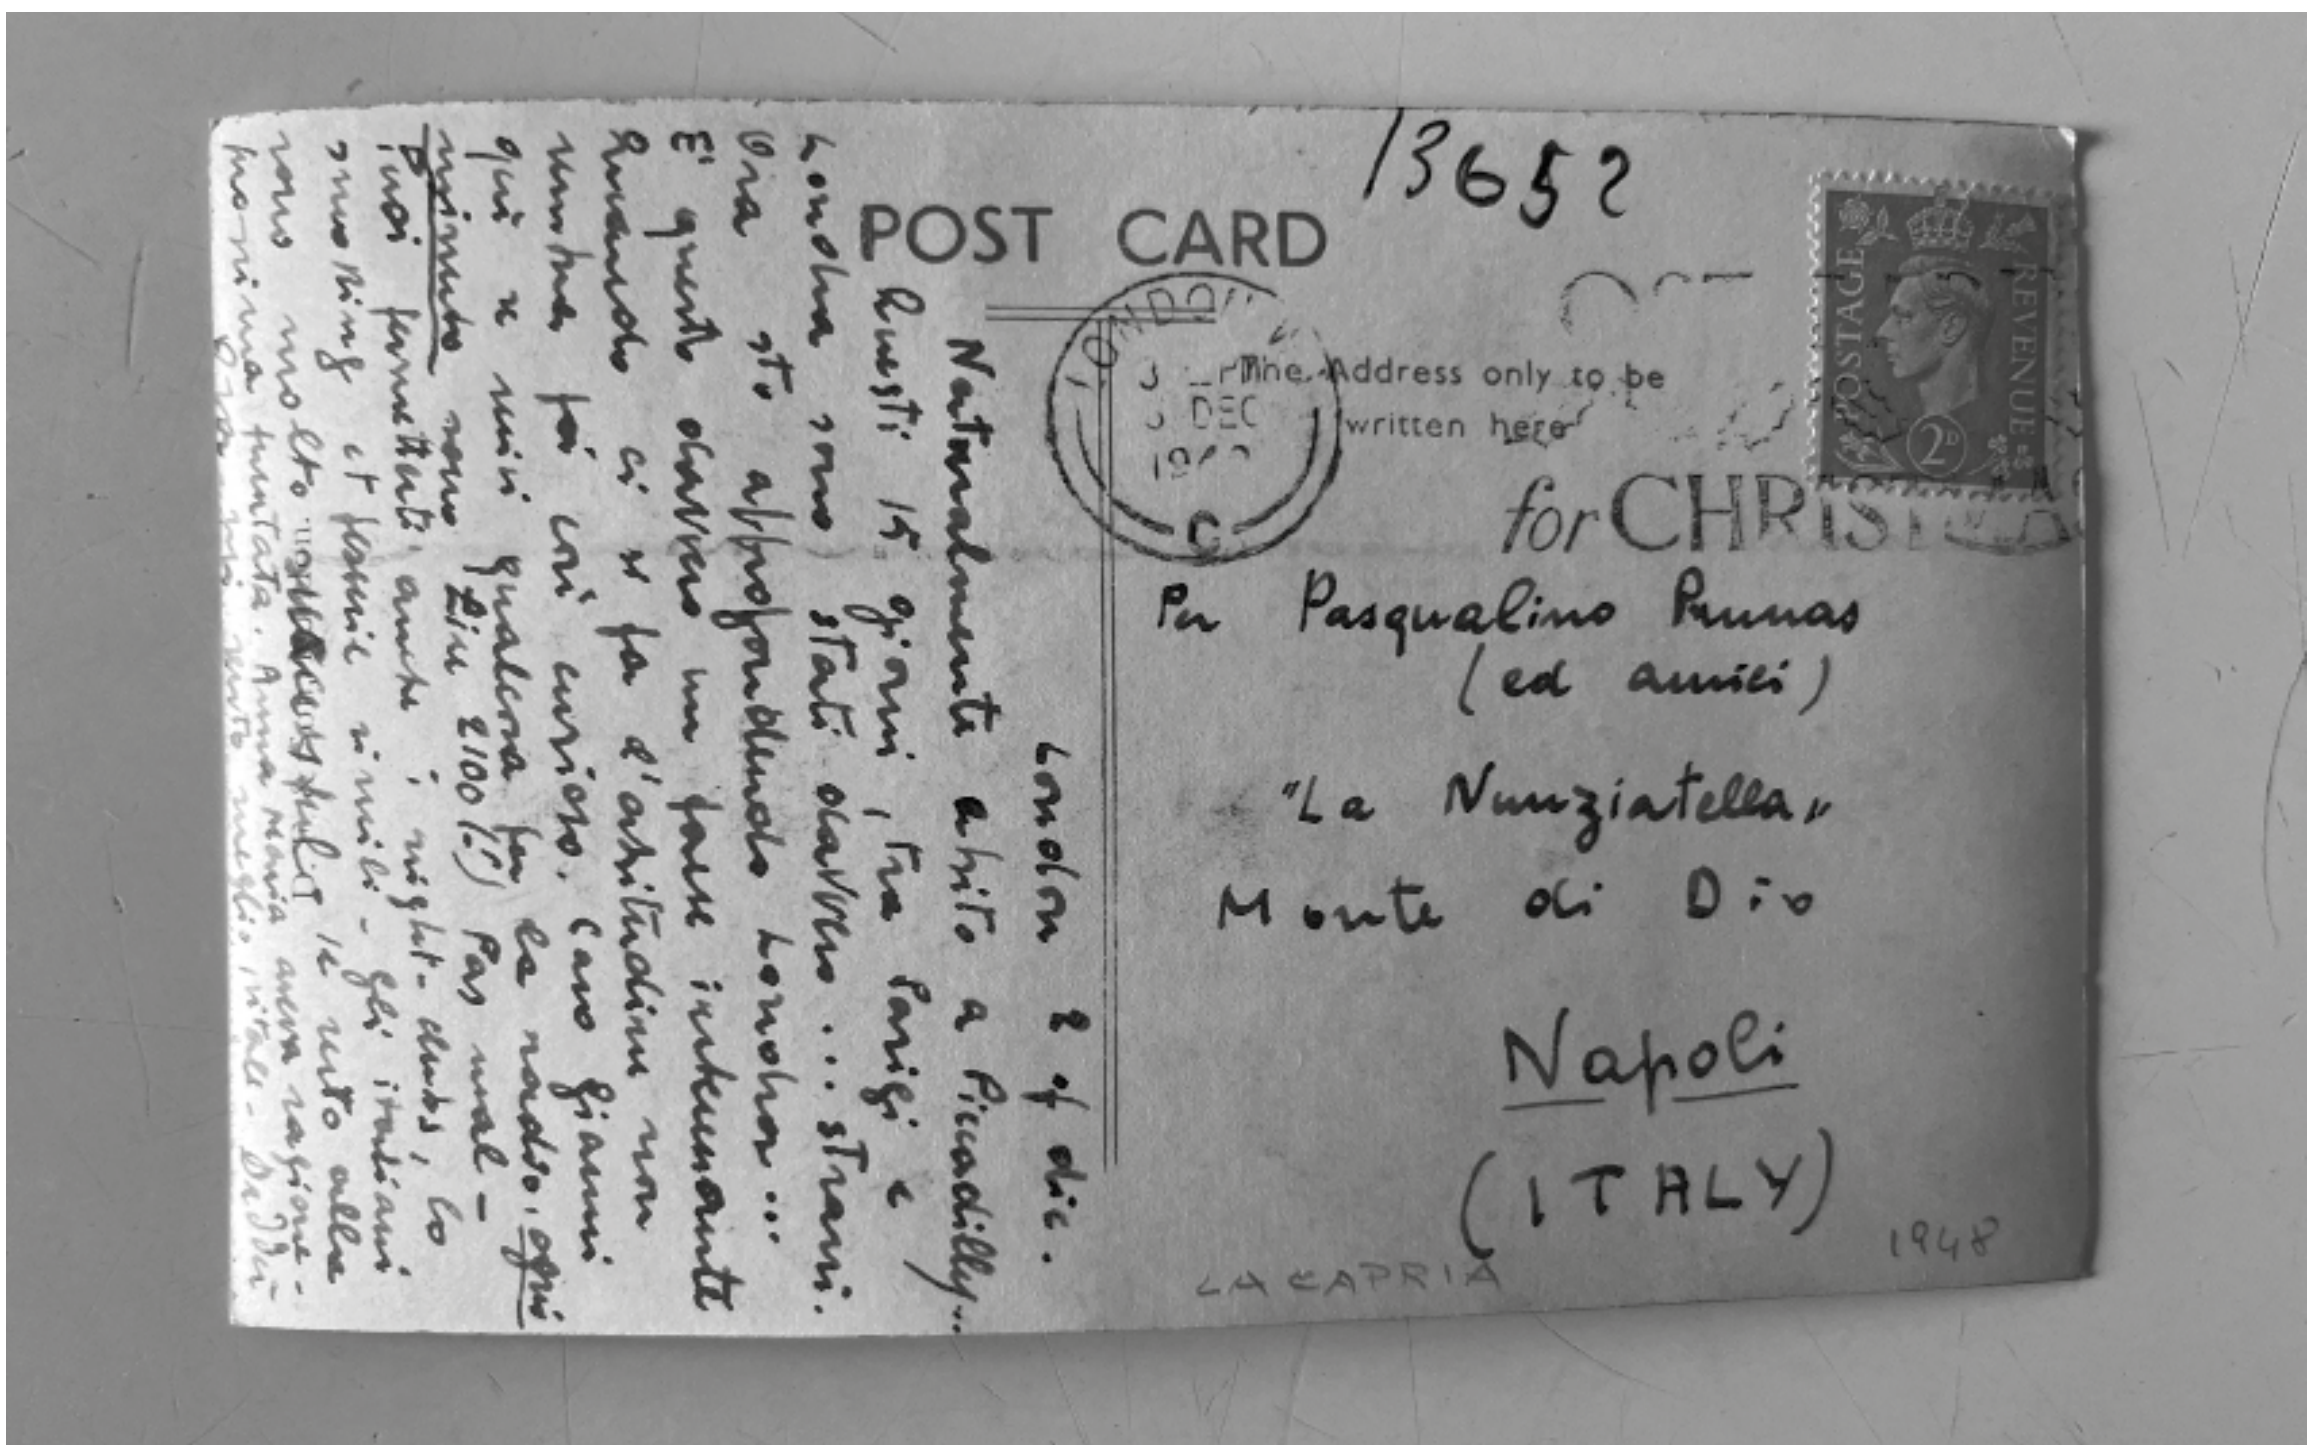 13652
POST CARD
POSTAGE REVENUE
2D
LONDON
DEC
19
C
The Address only to be
written here
for CHRISTMAS
Per Pasqualino Prunas
(ed amici)
"La Nunziatella"
Monte di Dio
Napoli
(ITALY)
LA CAPRIA
1948
London 2 of dic.
Naturalmente abito a Piccadilly...
Questi 15 giorni, tra Parigi e
Londra sono stati davvero... strani.
Ora sto approfondendo Londra...
E' questo davvero un paese
Quando ci si fa l'abitudine non
sembra poi così curioso. Caro Gianni
qui se scrivi qualcosa per la radio, ogni
minuto sono Lire 2100 (!!) Pas mal -
Puoi permetterti anche i night-clubs, lo
smoking et femmine simili - gli italiani
sono molto se visto alla
prossima puntata. Anna Maria aveva ragione -
Ora mi sento meglio,